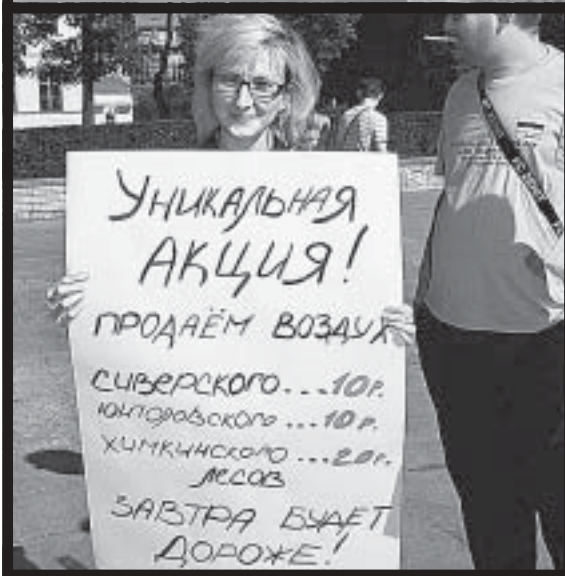 УНИКАЛЬНАЯ
АКЦИЯ!
ПРОДАЁМ ВОЗДУХ
СИВЕРСКОГО...10р.
ЮНТОЛОВСКОГО...10р.
ХИМКИНСКОГО...20р.
ЛЕСОВ
ЗАВТРА БУДЕТ
ДОРОЖЕ!